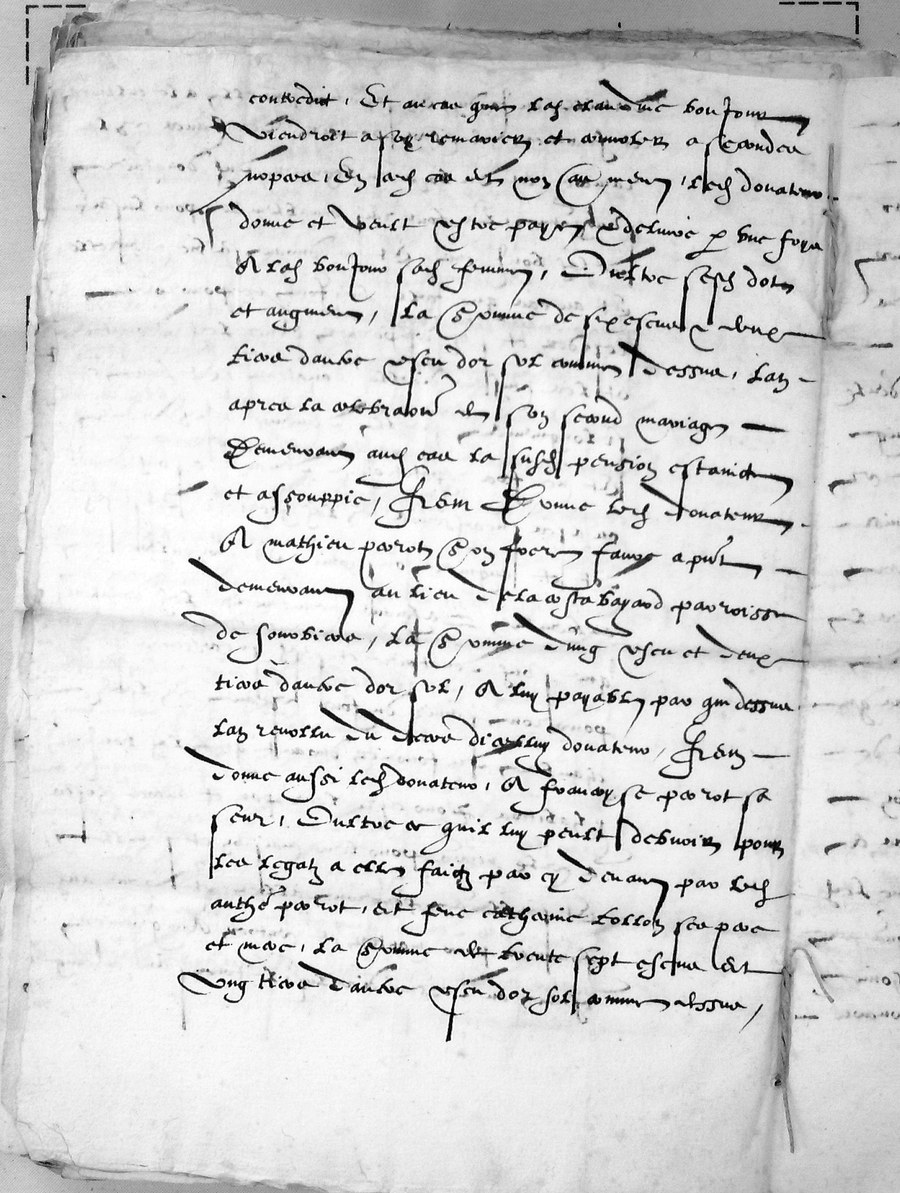 contredit, Et au cas que lad claudine bonjour
viendroit a soy remarier et convoler a secondes
nopces, En ce cas et non aultrement, led donateur
donne et veult estre payer et delivrer p une foys
A lad bonjour sad femme, Oultre sesd dotz
et augment, la somme de six escus deux
tiers daultre escu dor sol comme dessus, lan
apres la celebration de son second mariage
Demeurant aud cas la susd pension estaincte
et assouppie, Item Donne led donateur
A mathieu perrot son frere
demeurant au lieu de la costa bayard parroisse
de , la somme dung escu et deux
tiers daultre dor sol, A luy payable par que dessus
lan revollu du deces dicelluy donateur, Item
donne aussi led donateur, A francoyse perrot sa
seur, Oultre ce quil luy peult debvoir pour
les legatz a elle faictz par cy devant par led
anthe perrot, et feue catherine bollon ses pere
et mere, la somme de trente sept escus et
ung tiers daultre escu dor sol comme dessus,